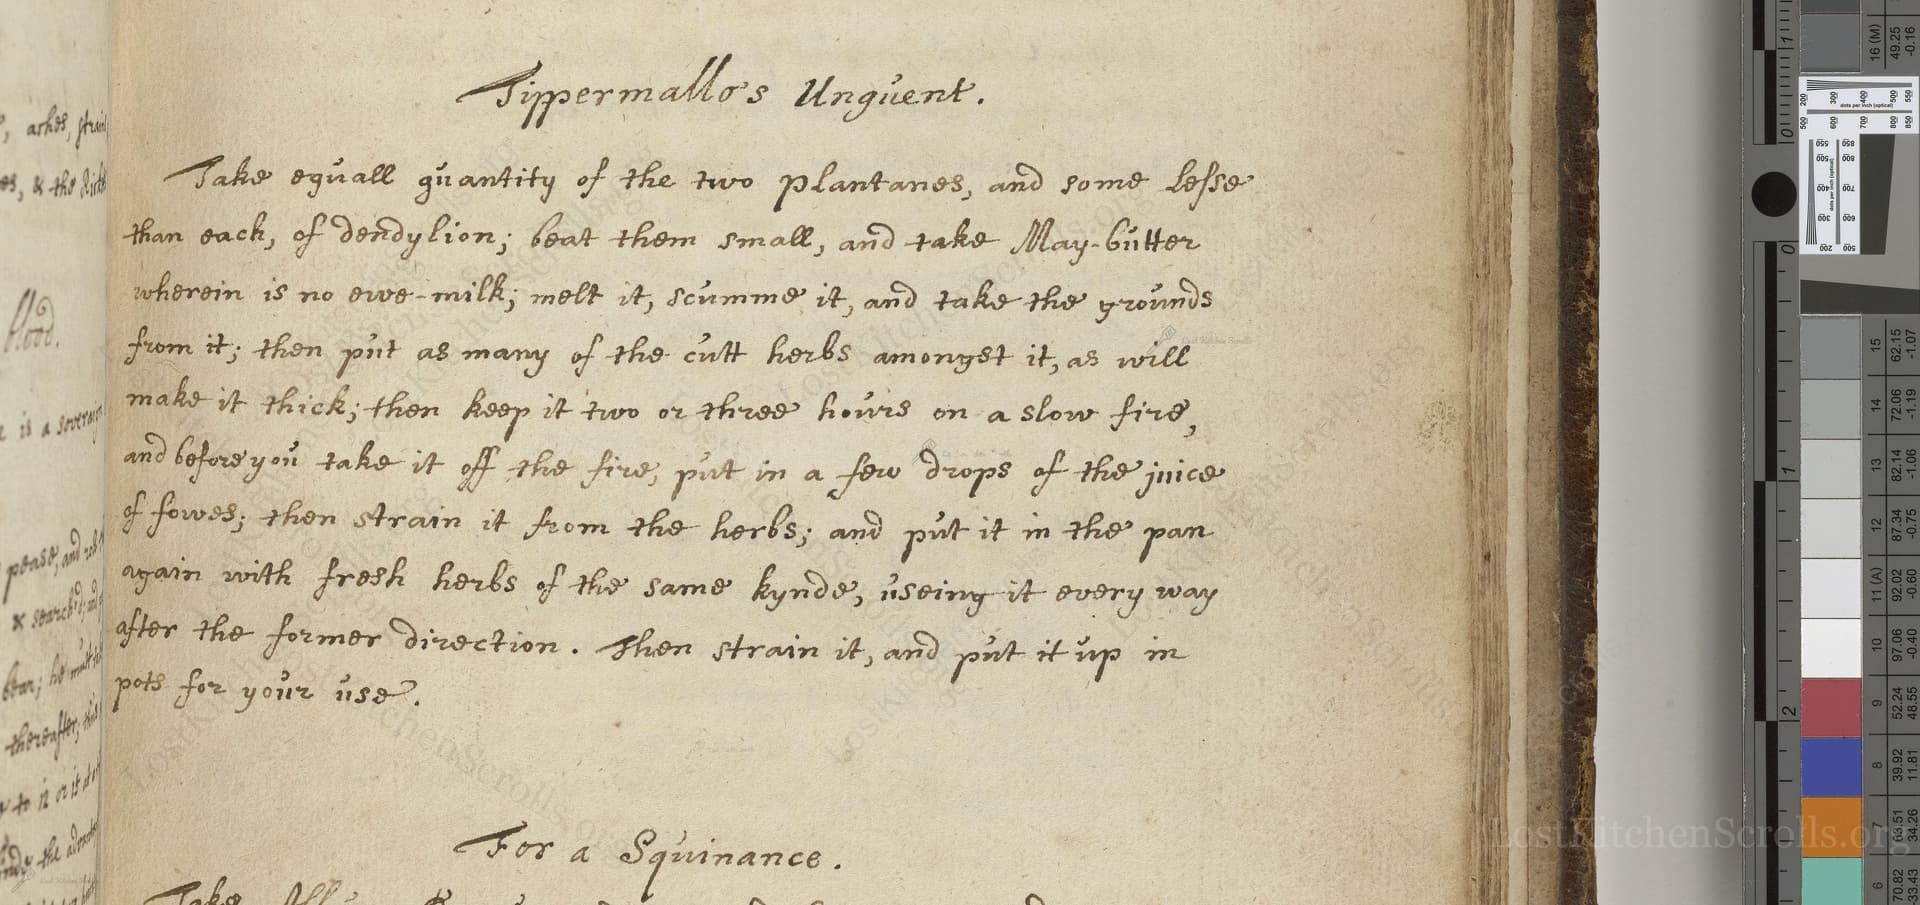 Tippermallo's Unguent.
Take equall quantity of the two plantanes, and some lesse
than each, of dendylion; beat them small, and take May-butter
wherein is no ewe-milk; melt it, scumme it, and take the grounds
from it; then put as many of the cutt herbs amongst it, as will
make it thick; then keep it two or three hours on a slow fire,
and before you take it off the fire, put in a few drops of the juice
of fowes; then strain it from the herbs; and put it in the pan
again with fresh herbs of the same kynde, useing it every way
after the former direction. Then strain it, and put it up in
pots for your use.
For a Squinance.
Take
, ashes, strain
es, & the
blood.
is a soveraign
pease, and
& search'd; and
bear; he must
thereafter; this
to it or it
the
LostKitchenScrolls.org
16 (M) 49.25 -0.16
15 62.15 -1.07
14 72.06 -1.19
13 82.14 -1.06
12 87.34 -0.75
11 (A) 92.02 -0.60
10 97.06 -0.40
9 52.24 48.55
8 39.92 11.81
7 63.51 34.26
6 70.82 -33.43
200 300 400 500 550
dots per inch (optical)
500 600 700 800 850
1
0
0
1
2